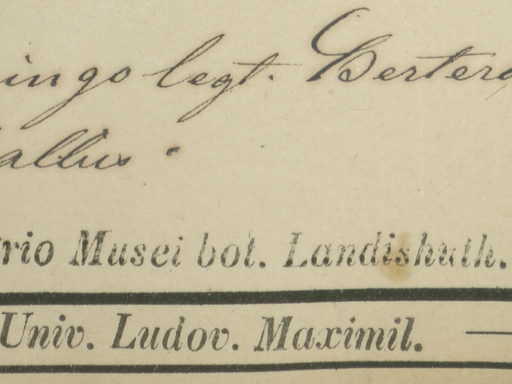 ingo legt. Bertero
allus.
rio Musei bot. Landishuth.
Univ. Ludov. Maximil. —